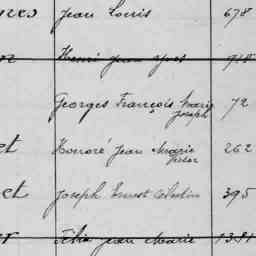 Jean Louis 678
Henri Jean Yves
Georges François Marie 72
Joseph
et Honoré Jean Marie 262
Victor
et Joseph Ernest Célestin 395
Jean Marie 1381